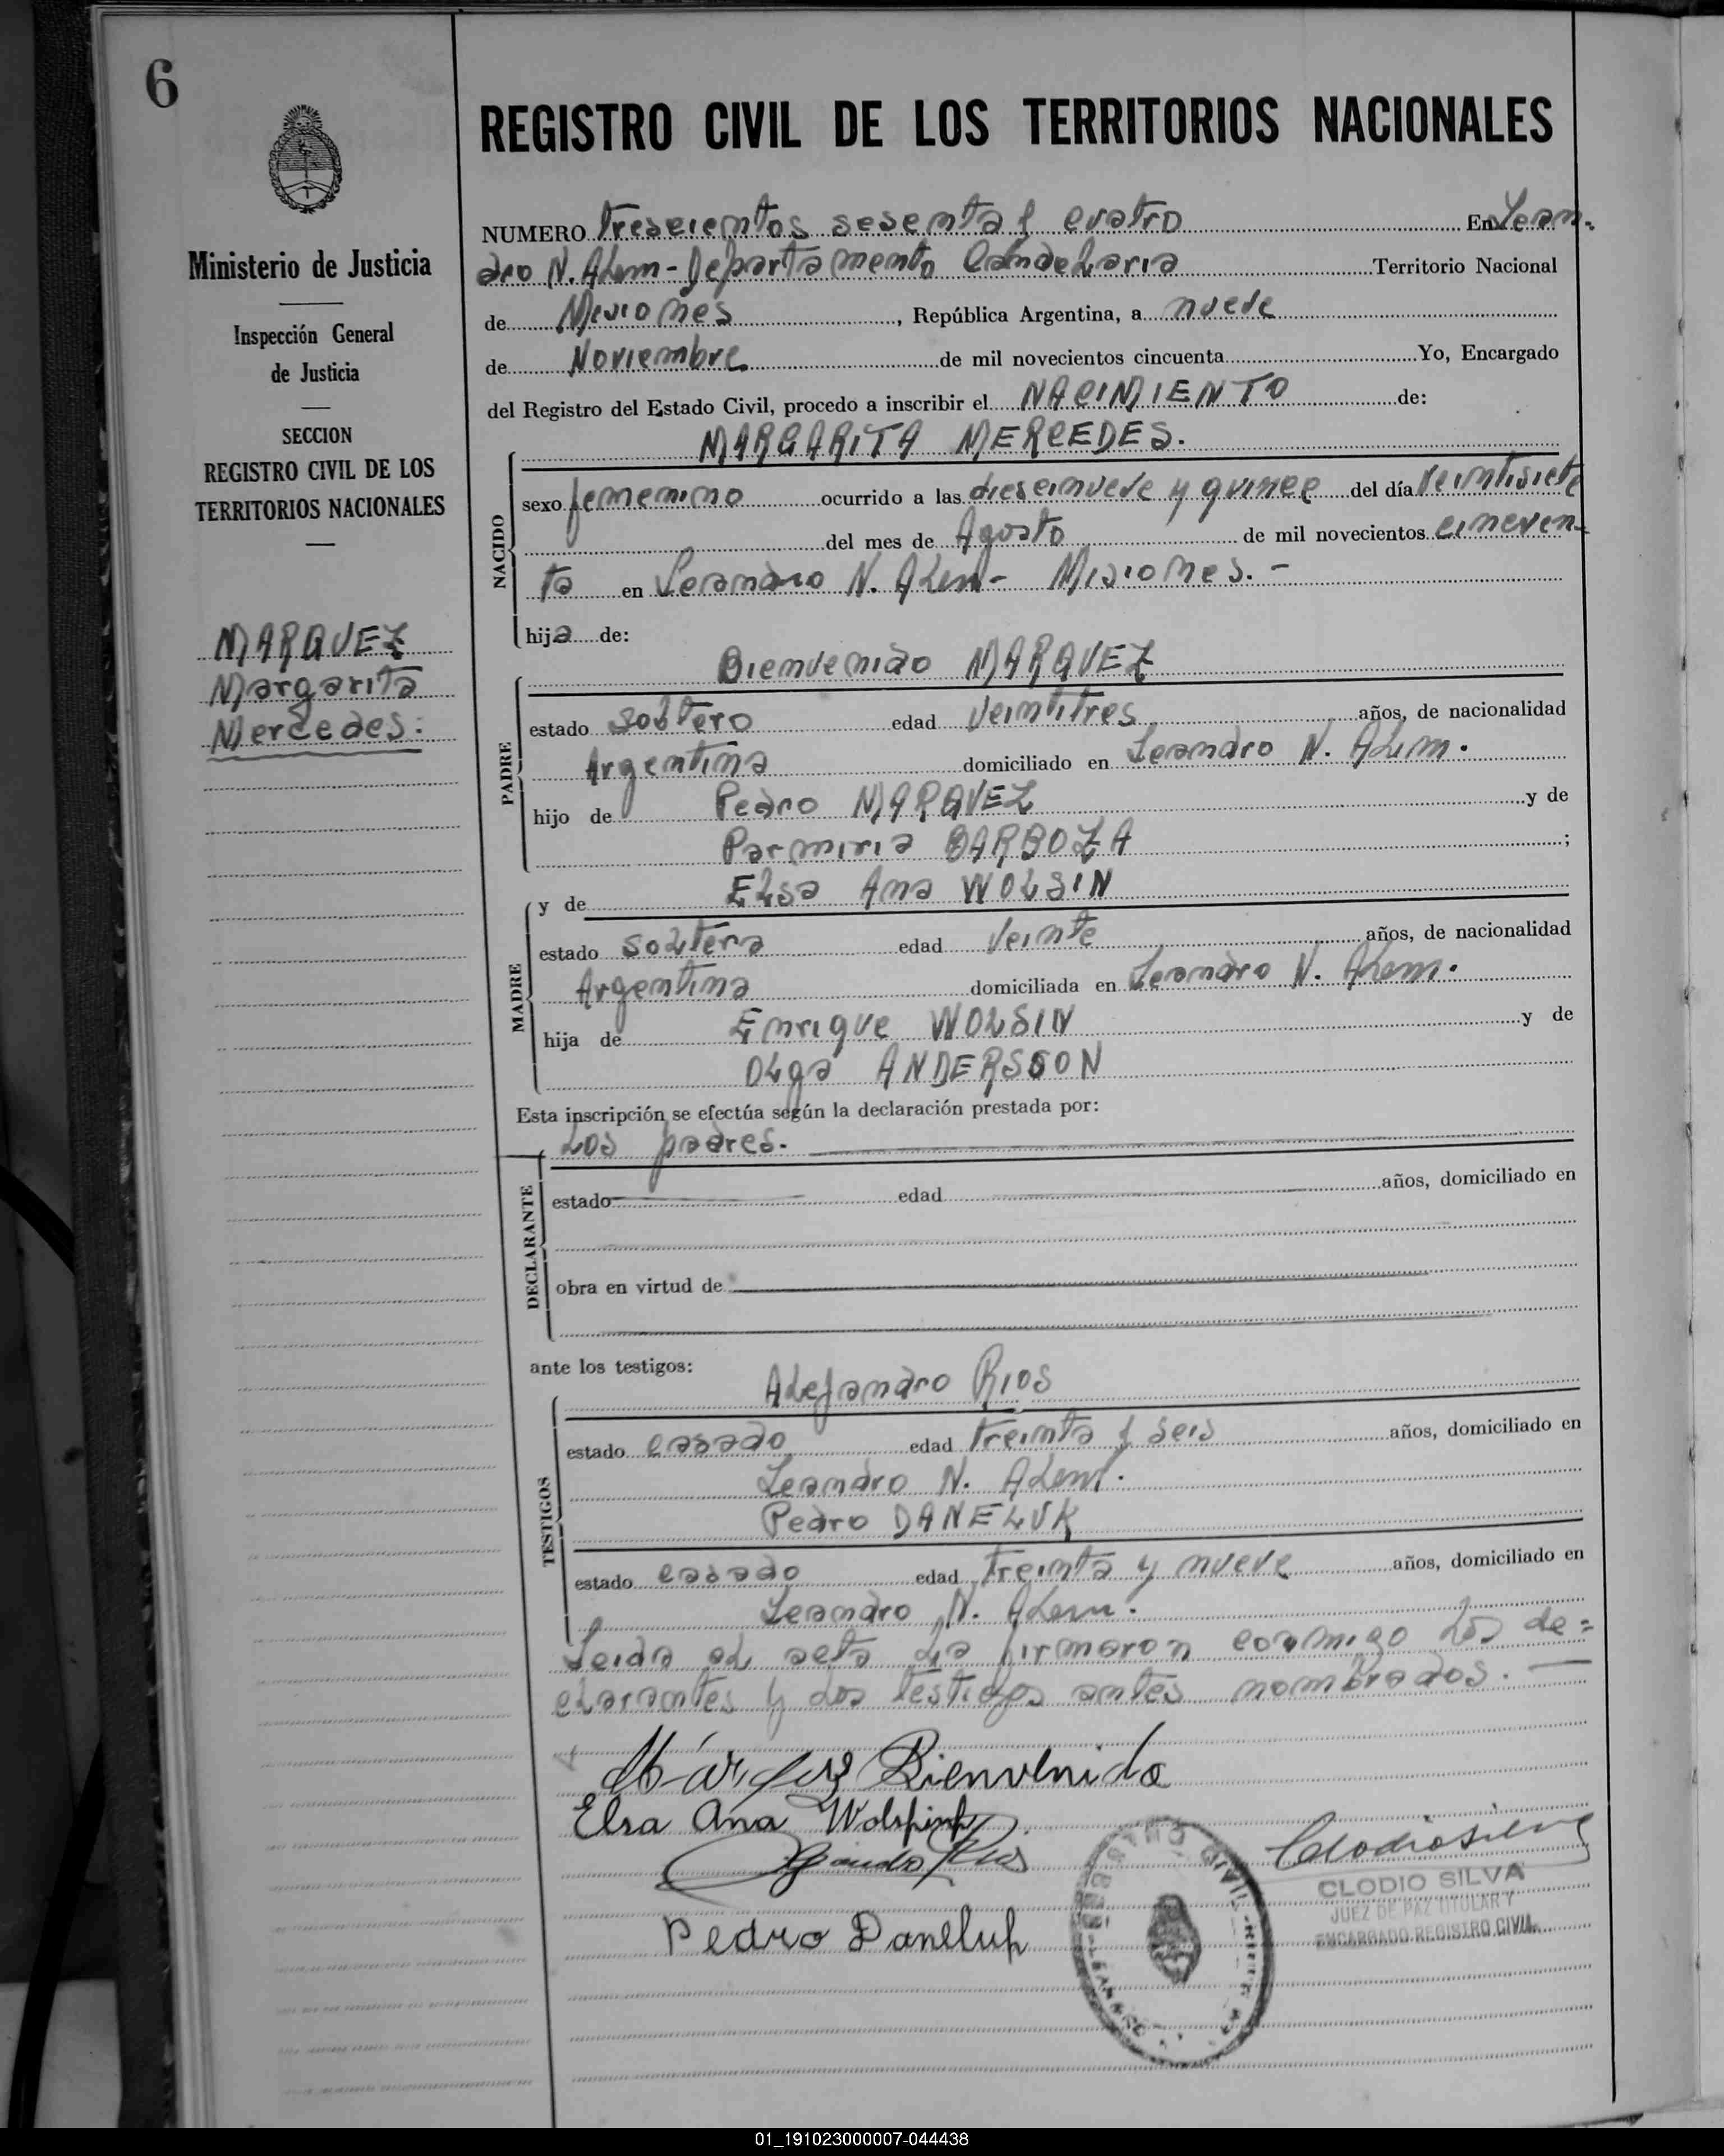 6
Ministerio de Justicia
Inspección General
de Justicia
SECCION
REGISTRO CIVIL DE LOS
TERRITORIOS NACIONALES
MARQUEZ
Margarita
Mercedes:
REGISTRO CIVIL DE LOS TERRITORIOS NACIONALES
NUMERO Trescientos sesenta y cuatro En Lean-
dro N. Alem - Departamento Candelaria Territorio Nacional
de Misiones, República Argentina, a nueve
de Noviembre de mil novecientos cincuenta Yo, Encargado
del Registro del Estado Civil, procedo a inscribir el NACIMIENTO de:
MARGARITA MERCEDES.
NACIDO
sexo femenino ocurrido a las diescinueve y quince del día veintisiete
del mes de Agosto de mil novecientos cincuen-
ta en Leandro N. Alem - Misiones. -
hija de:
Bienvenido MARQUEZ
PADRE
estado soltero edad veintitres años, de nacionalidad
Argentina domiciliado en Leandro N. Alem.
hijo de Pedro MARQUEZ y de
Parmiria BARBOZA ;
y de Elsa Ana WOLSIN
MADRE
estado soltera edad veinte años, de nacionalidad
Argentina domiciliada en Leandro N. Alem.
hija de Enrique WOLSIN y de
Olga ANDERSSON
Esta inscripción se efectúa según la declaración prestada por:
Los padres.
DECLARANTE
estado edad años, domiciliado en
obra en virtud de
ante los testigos:
Alejandro Rios
TESTIGOS
estado casado edad treinta y seis años, domiciliado en
Leandro N. Alem.
Pedro DANELUK
estado casado edad treinta y nueve años, domiciliado en
Leandro N. Alem.
Leida el acta la firmaron conmigo los de=
clarantes y los testigos antes nombrados.
Márquez Bienvenido
Elsa Ana
Rios
Pedro Daneluk
Clodio Silva
CLODIO SILVA
JUEZ DE PAZ TITULAR Y
ENCARGADO REGISTRO CIVIL
01_191023000007-044438